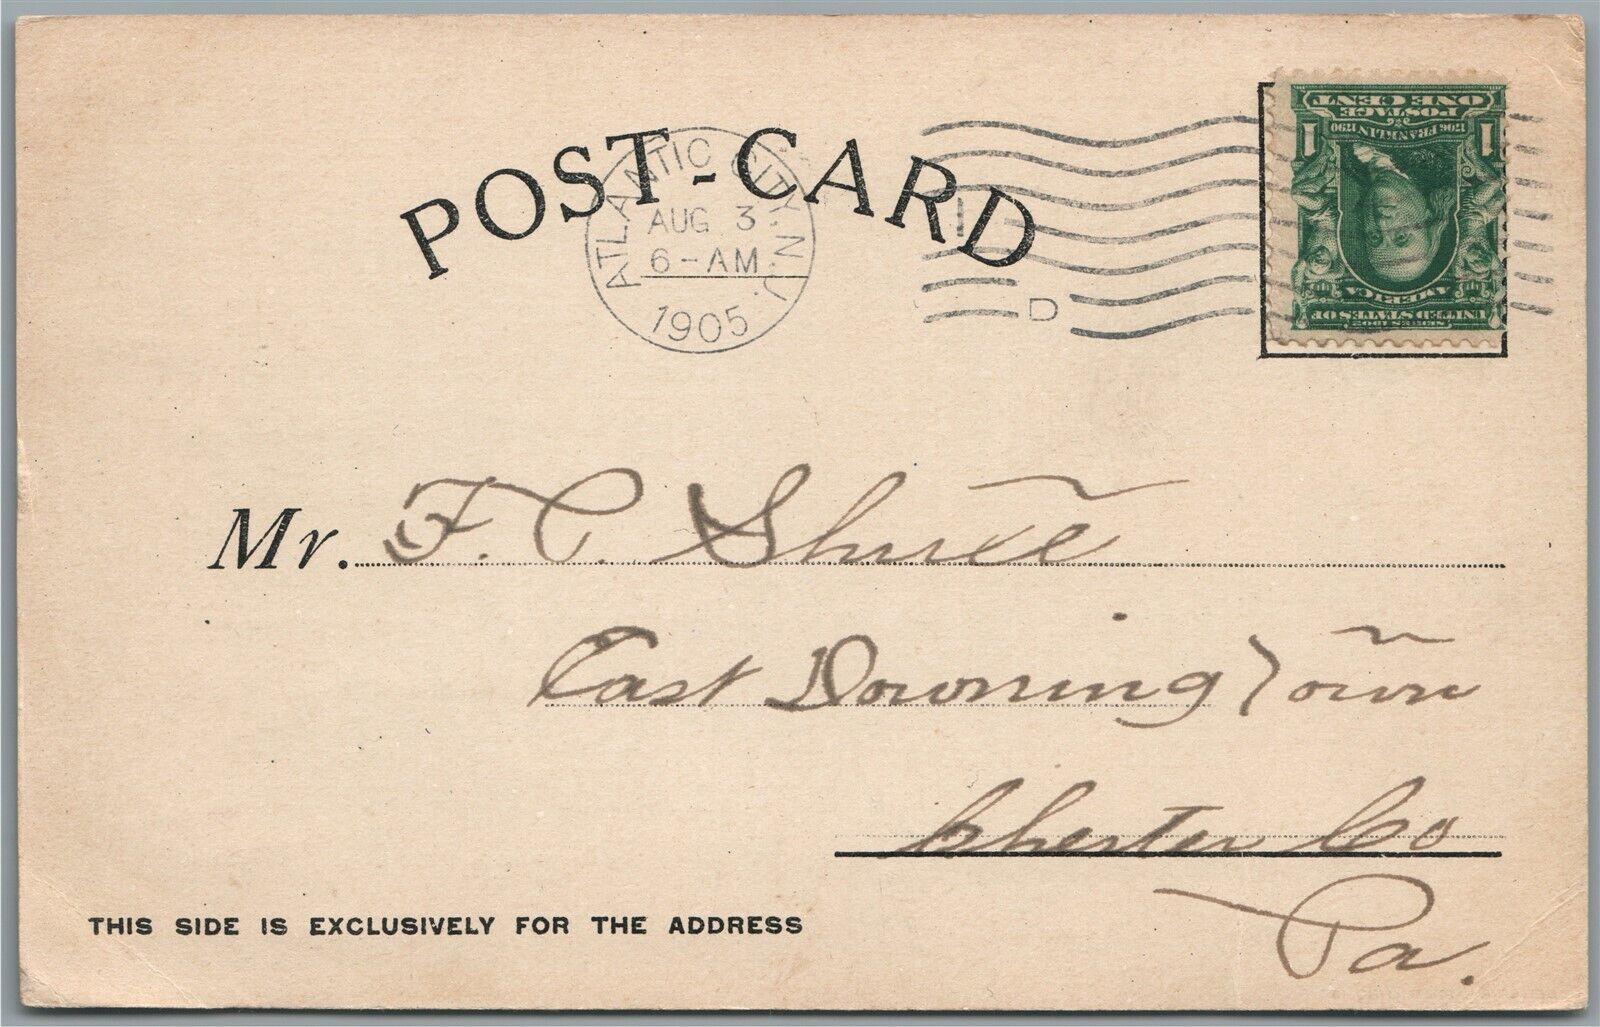 POST-CARD
ATLANTIC CITY, N.J.
AUG 3
6-AM
1905
1
D
SERIES 1902
UNITED STATES OF
AMERICA
1706 FRANKLIN 1790
1 1
POSTAGE
ONE CENT
Mr. F. C.
East Downingtown
Chester Co
Pa.
THIS SIDE IS EXCLUSIVELY FOR THE ADDRESS